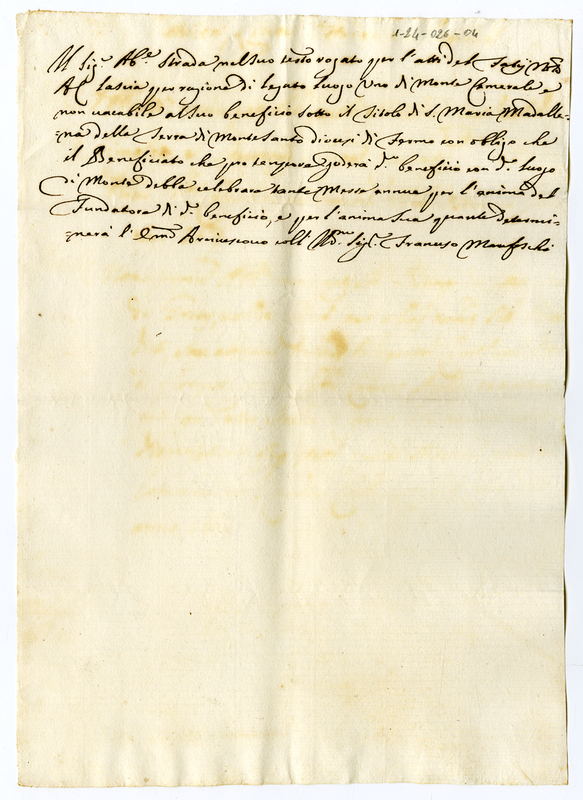 1-24-026-04
Il Sig.r Ab.e Strada nel suo testo rogato per l'atti del
AC lascia per ragione di legato luogo uno di Monte Camerale e
non vacabile al suo beneficio sotto il titolo di S. Maria Madalle=
=na della Serra di Monte Santo diocesi di Fermo con obligo che
il Beneficiato che pro tempore goderà d.o beneficio con d.o luogo
di Monte debba celebrare tante Messe annue per l'anima del
Fundatore di d.o beneficio, e per l'anima sua quante determi=
=nerà l' Arcivescovo coll' Sig.r Franceso